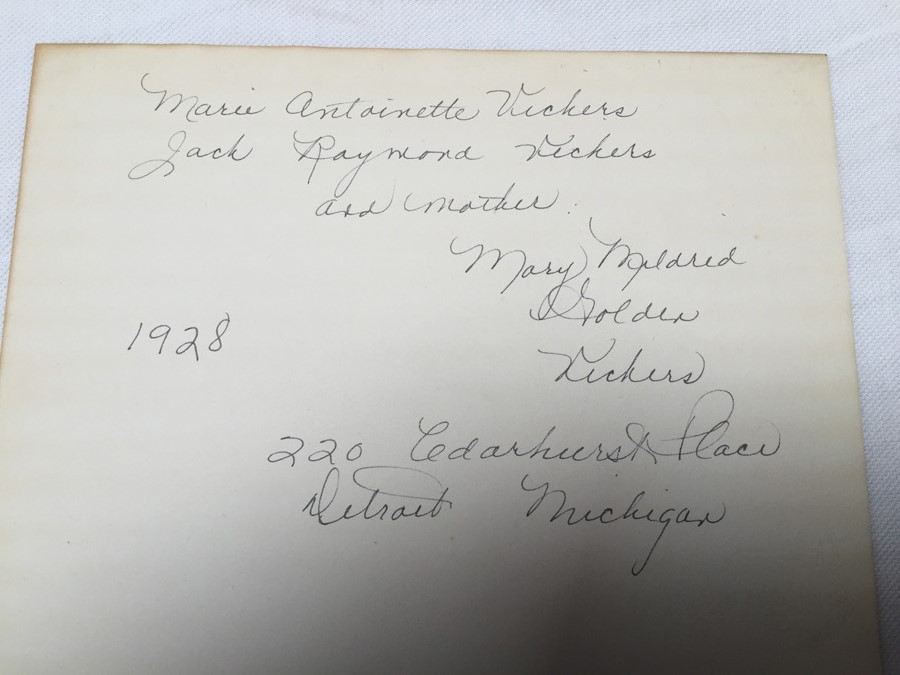 Marie Antoinette Vickers
Jack Raymond Vickers
and mother.
Mary Mildred
Golden
Vickers
1928
220 Cedarhurst Place
Detroit Michigan